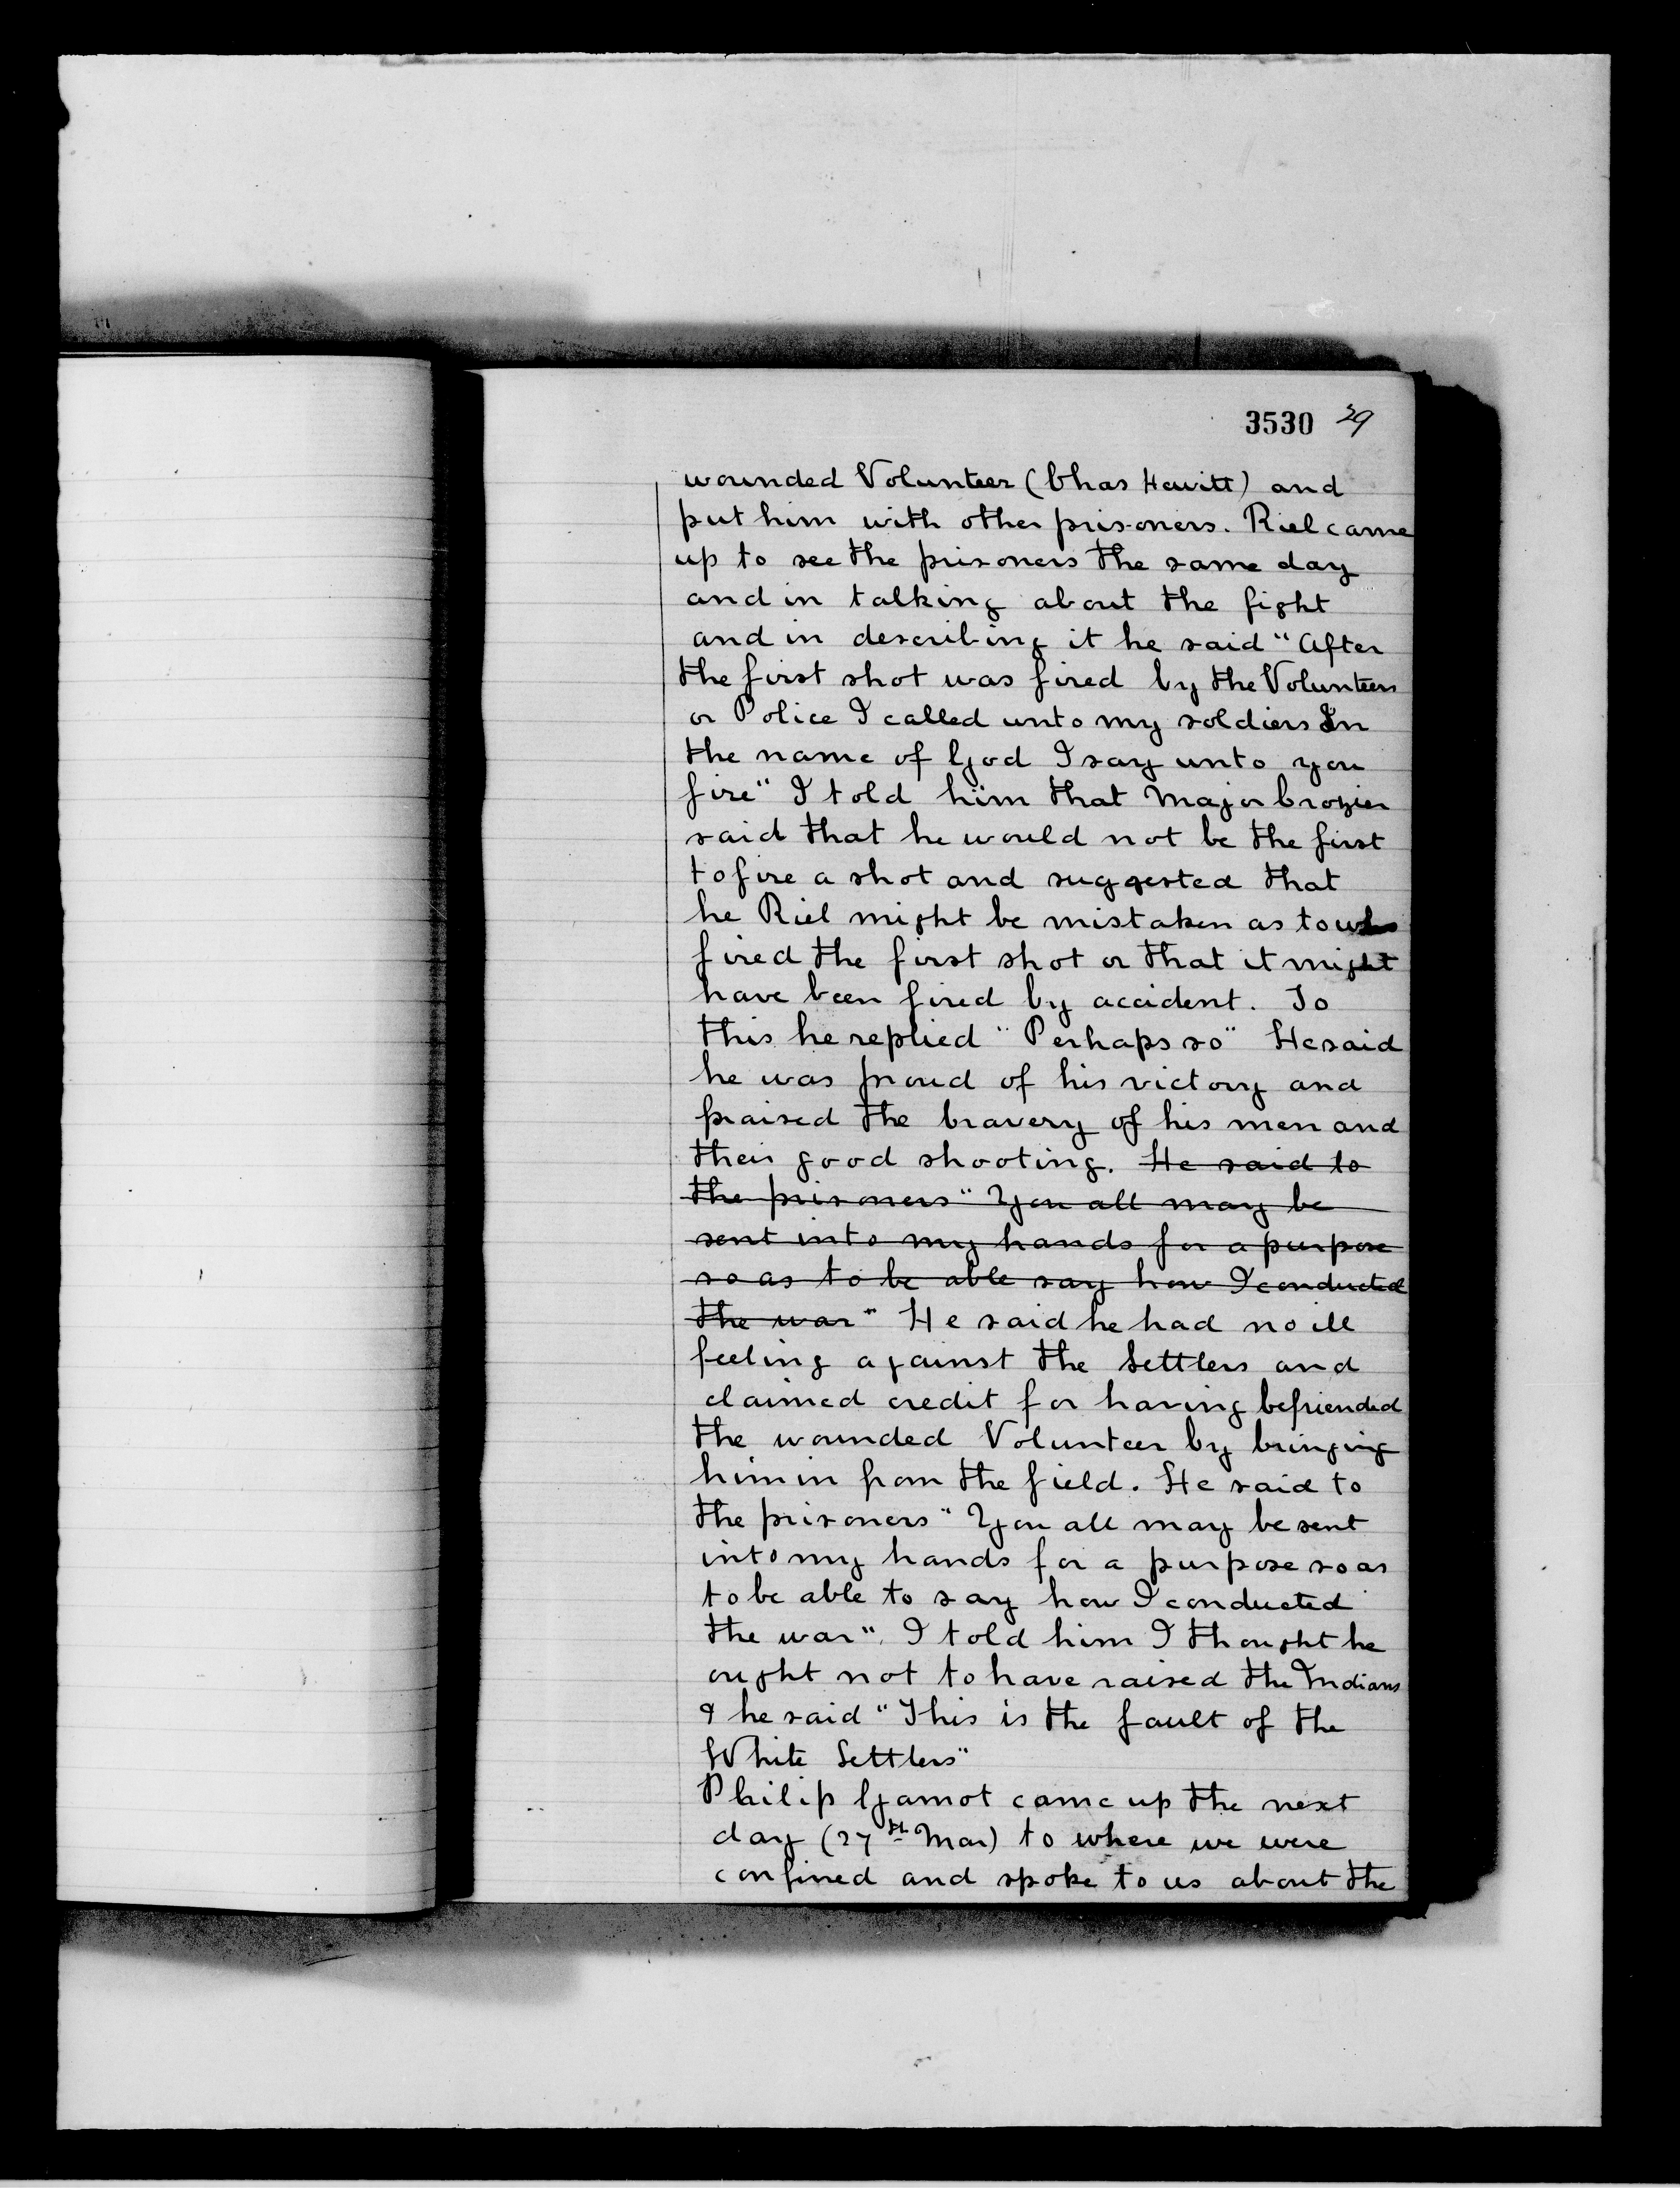 3530 29
wounded Volunteer (Chas Hewitt) and
put him with other prisoners. Riel came
up to see the prisoners the same day
and in talking about the fight
and in describing it he said "After
the first shot was fired by the Volunteers
or Police I called unto my soldiers In
the name of God I say unto you
fire" I told him that Major Crozier
said that he would not be the first
to fire a shot and suggested that
he Riel might be mistaken as to who
fired the first shot or that it might
have been fired by accident. To
this he replied "Perhaps so" He said
he was proud of his victory and
praised the bravery of his men and
their good shooting. He said to
the prisoners "You all may be
sent into my hands for a purpose
so as to be able say how I conducted
the war" He said he had no ill
feeling against the Settlers and
claimed credit for having befriended
the wounded Volunteer by bringing
him in from the field. He said to
the prisoners "You all may be sent
into my hands for a purpose so as
to be able to say how I conducted
the war". I told him I thought he
ought not to have raised the Indians
& he said "This is the fault of the
White Settlers"
Philip Gamot came up the next
day (27th Mar) to where we were
confined and spoke to us about the